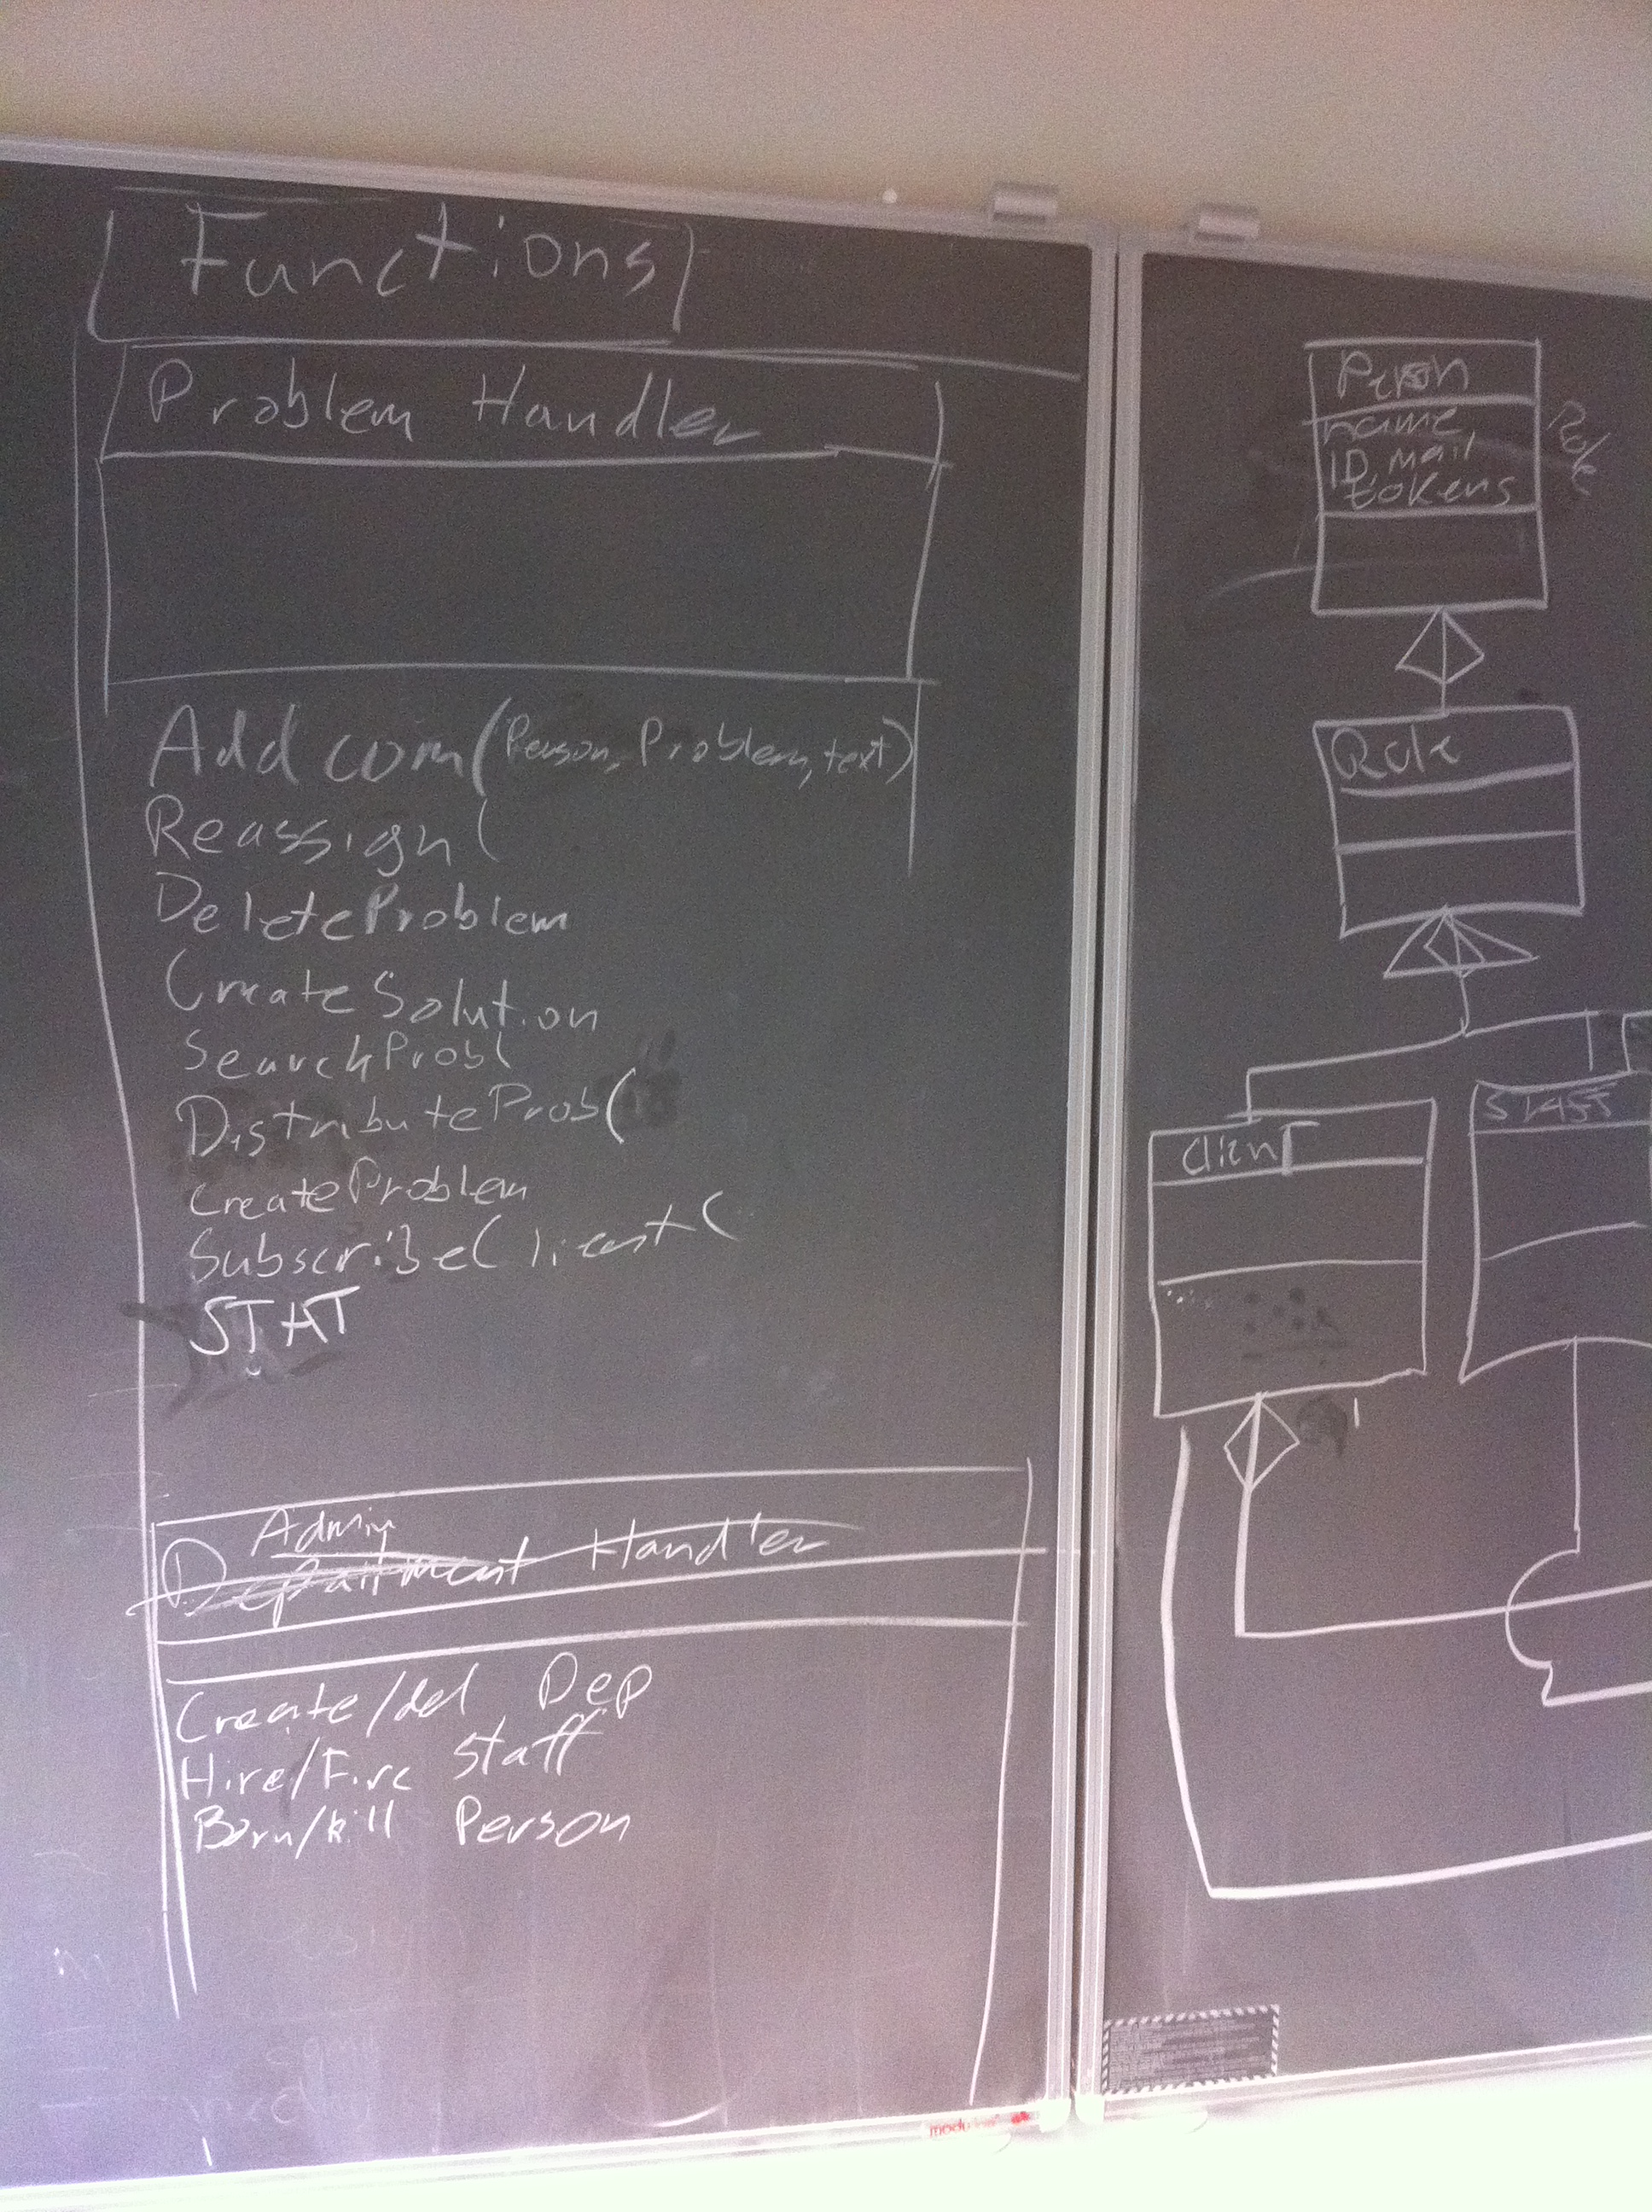 Functions
Problem Handler
Add com(Person, Problem, text)
Reassign(
DeleteProblem
CreateSolution
SearchProbl
DistributeProb(
CreateProblem
SubscribeClient(
STAT
Admin
Department Handler
Create/del Dep
Hire/Fire Staff
Born/kill Person
Person
name
ID, mail
tokens
Role
Role
Client
Staff